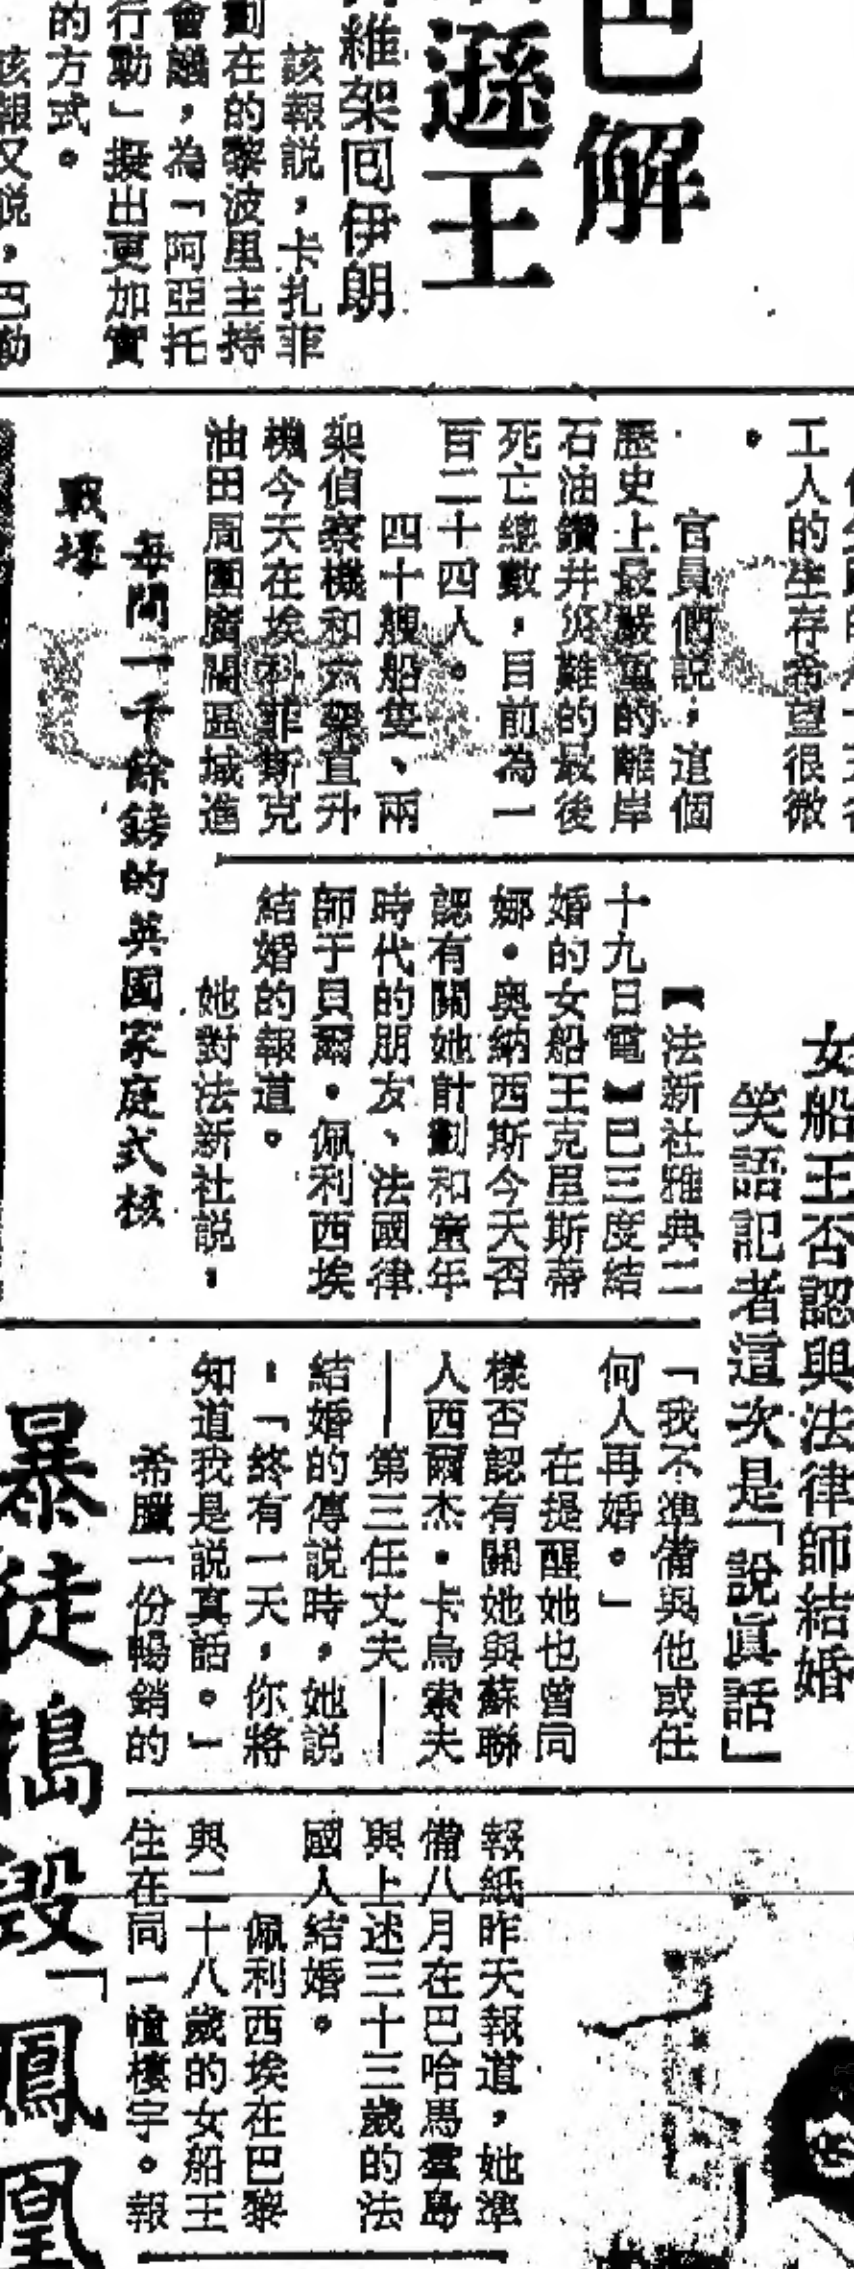 巴解
遜王
維架囘伊朗
該報説,卡扎菲
劃在的黎波里主持
會議,為「阿亞托
行動」擬出更加實
的方式。
該報又説,巴勒
工人的生存希望很微
。
官員們説,這個
歷史上最嚴重的離岸
石油鑽井災難的最後
死亡總數,目前為一
百二十四人。
四十艘船隻、兩
架偵察機和六架直升
機今天在埃科菲斯克
油田周圍廣闊區域進
每間一千餘鎊的英國家庭式核
戰壕
女船王否認與法律師結婚
笑語記者這次是「說眞話」
【法新社雅典二
十九日電】已三度結
婚的女船王克里斯蒂
娜・奧納西斯今天否
認有關她計劃和童年
時代的朋友、法國律
師于貝爾・佩利西埃
結婚的報道。
她對法新社説,
「我不準備與他或任
何人再婚。」
在提醒她也曾同
樣否認有關她與蘇聯
人西爾杰・卡烏索夫
──第三任丈夫──
結婚的傳説時,她説
:「終有一天,你將
知道我是説真話。」
希臘一份暢銷的
報紙昨天報道,她準
備八月在巴哈馬羣島
與上述三十三歲的法
國人結婚。
佩利西埃在巴黎
與二十八歲的女船王
住在同一幢樓宇。報
暴徒搗毀「鳳凰